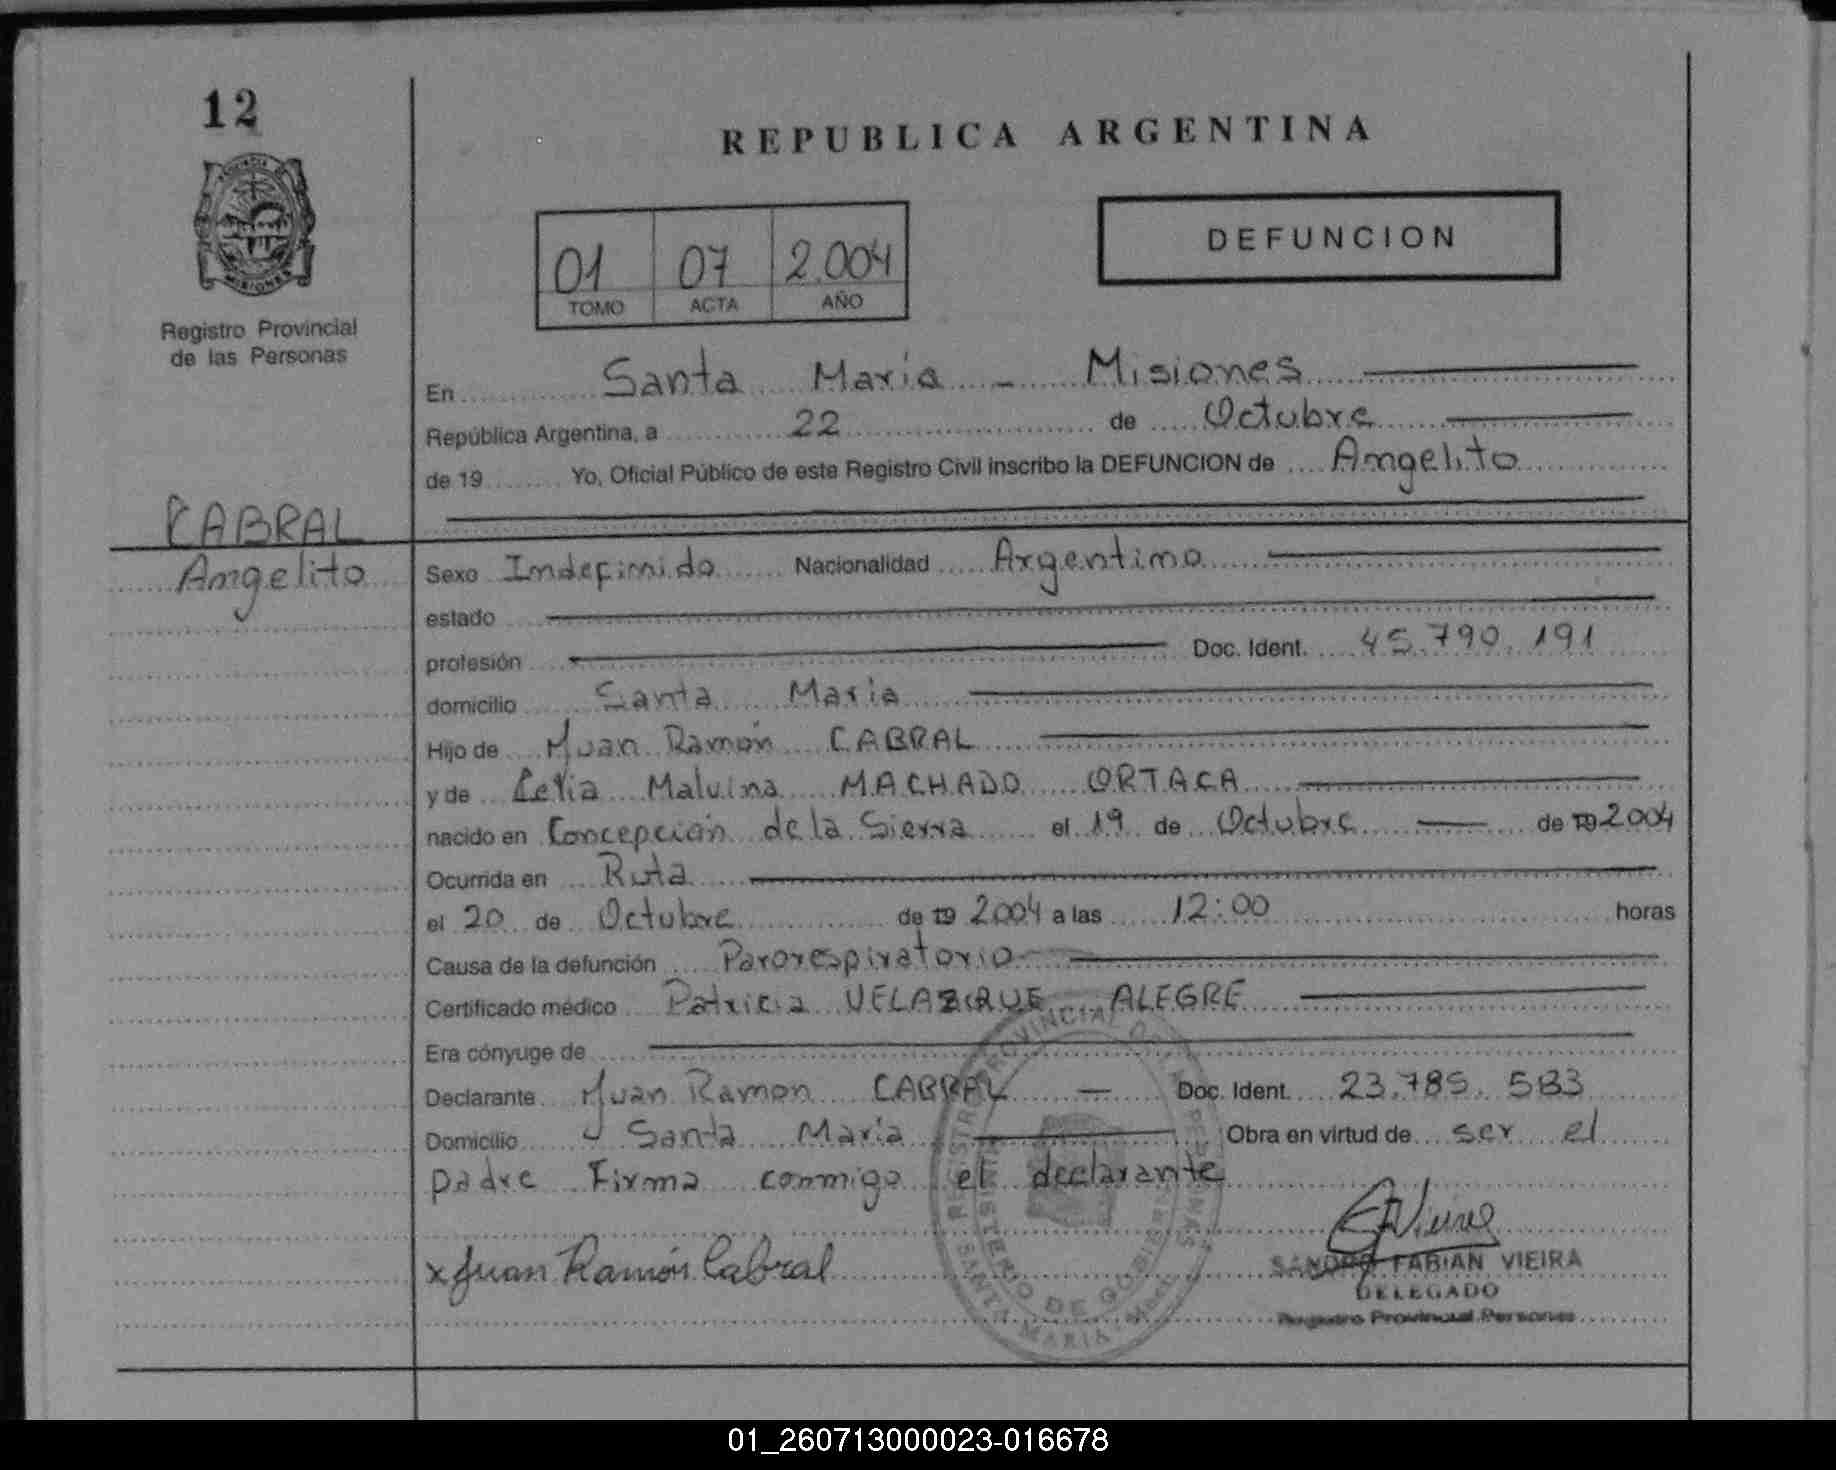 12
REPUBLICA ARGENTINA
DEFUNCION
01 07 2.004
TOMO ACTA AÑO
Registro Provincial
de las Personas
En Santa Maria - Misiones
República Argentina, a 22 de Octubre
de 19 Yo, Oficial Público de este Registro Civil inscribo la DEFUNCION de Angelito
CABRAL
Angelito
Sexo Indefinido Nacionalidad Argentino
estado
profesión Doc. Ident. 45.790.191
domicilio Santa Maria
Hijo de Juan Ramón CABRAL
y de Malvina MACHADO ORTACA
nacido en Concepción de la Sierra el 19 de Octubre de 19 2004
Ocurrida en Ruta
el 20 de Octubre de 19 2004 a las 12:00 horas
Causa de la defunción Parorespiratorio
Certificado médico Patricia VELAZQUE ALEGRE
Era cónyuge de
Declarante Juan Ramon CABRAL - Doc. Ident. 23.785.583
Domicilio Santa Maria Obra en virtud de ser el
padre Firma conmigo el declarante
x Juan Ramón Cabral
SANDRO FABIAN VIEIRA
DELEGADO
Registro Provincial Personas
REGISTRO PROVINCIAL DE LAS PERSONAS
MINISTERIO DE GOBIERNO
SANTA MARIA
01_260713000023-016678